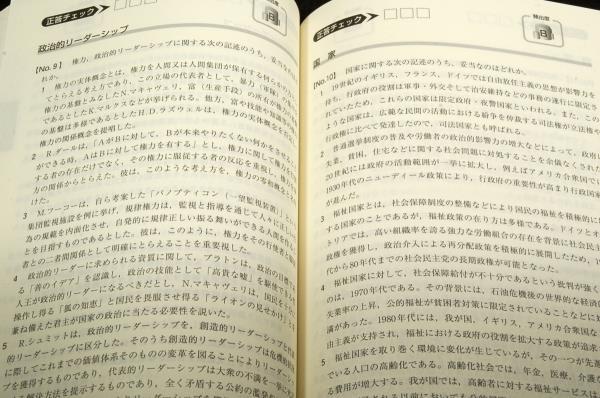 正答チェック
頻出度
B
政治的リーダーシップ
【No. 9】 権力、政治的リーダーシップに関する次の記述のうち、妥当な
れか。
1 権力の実体概念とは、権力を人間又は人間集団が保有する何らかの
てとらえる考え方であり、この立場の代表者として、暴力（軍隊）の
力の基盤とみなしたN.マキャヴェリ、富（生産手段）の所有が
であるとしたK.マルクスなどが挙げられる。他方、富や技能や知識
の基盤は多様であるとしたH.D.ラズウェルは、権力の実体概念を
力の関係概念を提唱した。
2 R.ダールは、「AがBに対して、Bが本来やりたくない何かをさせる
ができる時、AはBに対して権力を有する」とし、権力に関して権力を
する者の存在だけでなく、その権力に服従する者の反応を重視し、権
方の関係からとらえた。彼は、このような考え方を、権力の零和概念と
けた。
3 M.フーコーは、自ら考案した「パノプティコン（一望監視装置）」という
集団監視施設を例に挙げ、規律権力は、監視と指導を通じて人々に正しい
為の規範を内面化させ、自発的に規律正しい振る舞いができる人間を作る
とを目指すものであるとした。彼は、このように、権力をその行使者と
者との二者間関係として明確にとらえることを重視した。
4 政治的リーダーに求められる資質に関して、プラトンは、政治の目標で
る「善のイデア」を認識し、政治の技術として「高貴な嘘」を駆使できる
人王が政治的リーダーになるべきだとし、N.マキャヴェリは、国民を
操作し得る「狐の知恵」と国民を畏服させ得る「ライオンの見せかけ」
兼ね備えた君主が国家の政治に当たる必要性を説いた。
5 R.シュミットは、政治的リーダーシップを、創造的リーダーシップと
的リーダーシップに区分した。そのうち創造的リーダーシップは危機
に際してこれまでの価値体系そのものの変革を図ることによりリーダー
プを獲得するものであり、代表的リーダーシップは大衆の不満を一挙に
る解決方法を提示するものであり、全く矛盾する公約の濫発
正答チェック
頻出度
B
国 家
【No.10】 国家に関する次の記述のうち、妥当なのはどれか。
1 19世紀のイギリス、フランス、ドイツでは自由放任主義の思想が影響力を
持ち、行政府の役割は軍事・外交そして治安維持などの事務の遂行に限定さ
れていたため、これらの国家は限定政府・夜警国家といわれる。また、この
ような国家は、広範な民間の活動における紛争を仲裁する司法権が立法権や
行政権に比べて発達したので、司法国家とも呼ばれる。
2 普通選挙制度の普及や労働者の政治的影響力の増大などによって、政府は
失業、貧困、住宅などに関する社会問題に対処することを余儀なくされた。
20世紀には政府の活動範囲が一挙に拡大し、例えばアメリカ合衆国では
1930年代のニューディール政策により、行政府の重要性が高まり行政国家
が進んだ。
3 福祉国家とは、社会保障制度の整備などにより国民の福祉を積極的に
する国家のことであるが、福祉政策の在り方は多様である。ドイツとオー
トリアでは、高い組織率を誇る強力な労働組合の存在を背景に社会民主
政権を獲得し、政治介入による再分配政策を積極的に展開したため、19
代から80年代までの社会民主党の長期政権が可能となった。
4 福祉国家に対して、社会保障給付が不十分であるという批判が強く
のは、1970年代である。その背景には、石油危機後の世界的な経済
失業率の上昇、公的福祉が貧困者対策に限定されていることなどに対
満があった。1980年代には、我が国、イギリス、アメリカ合衆国な
由主義が支持され、福祉における政府の役割を拡大する政策が追求
5 福祉国家を取り巻く環境に変化が生じているが、その一つが先進
でいる人口の高齢化である。高齢化社会では、年金、医療、介護な
る費用が増大する。我が国では、高齢者に対する福祉サービスは